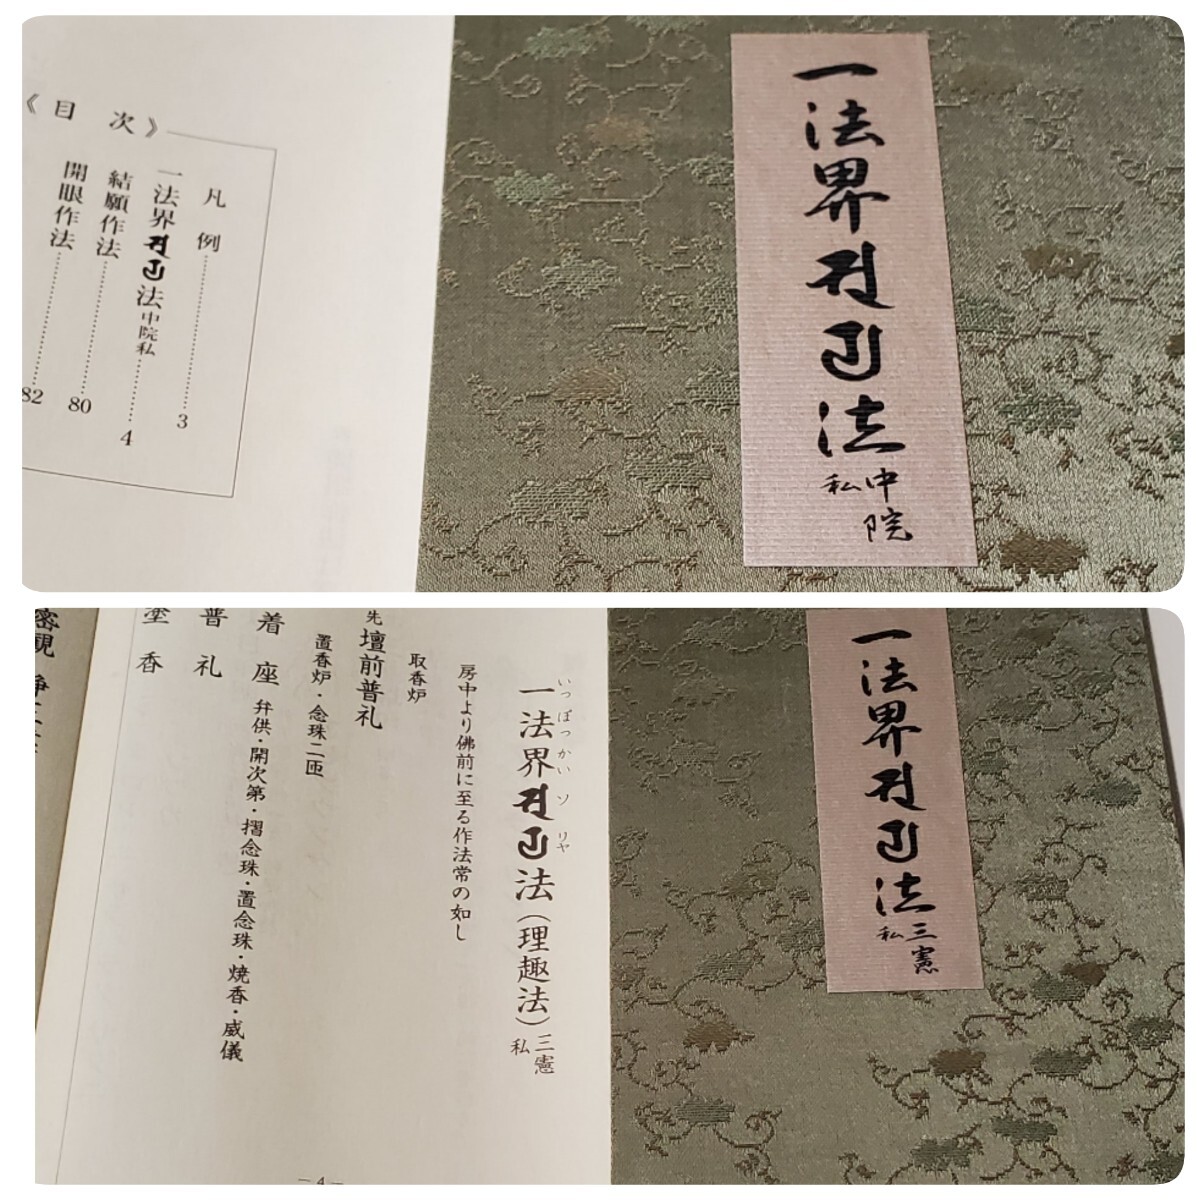 一法界法 中院
私
《目次》
凡例 3
一法界法 中院私 4
結願作法 80
開眼作法 82
一法界法 三憲
私
いっぽっかいソリヤ
一法界法(理趣法) 三憲
私
房中より佛前に至る作法常の如し
取香炉
先 壇前普礼
置香炉・念珠二匝
着座 弁供・開次第・摺念珠・置念珠・焼香・威儀
普礼
塗香
密観
―4―